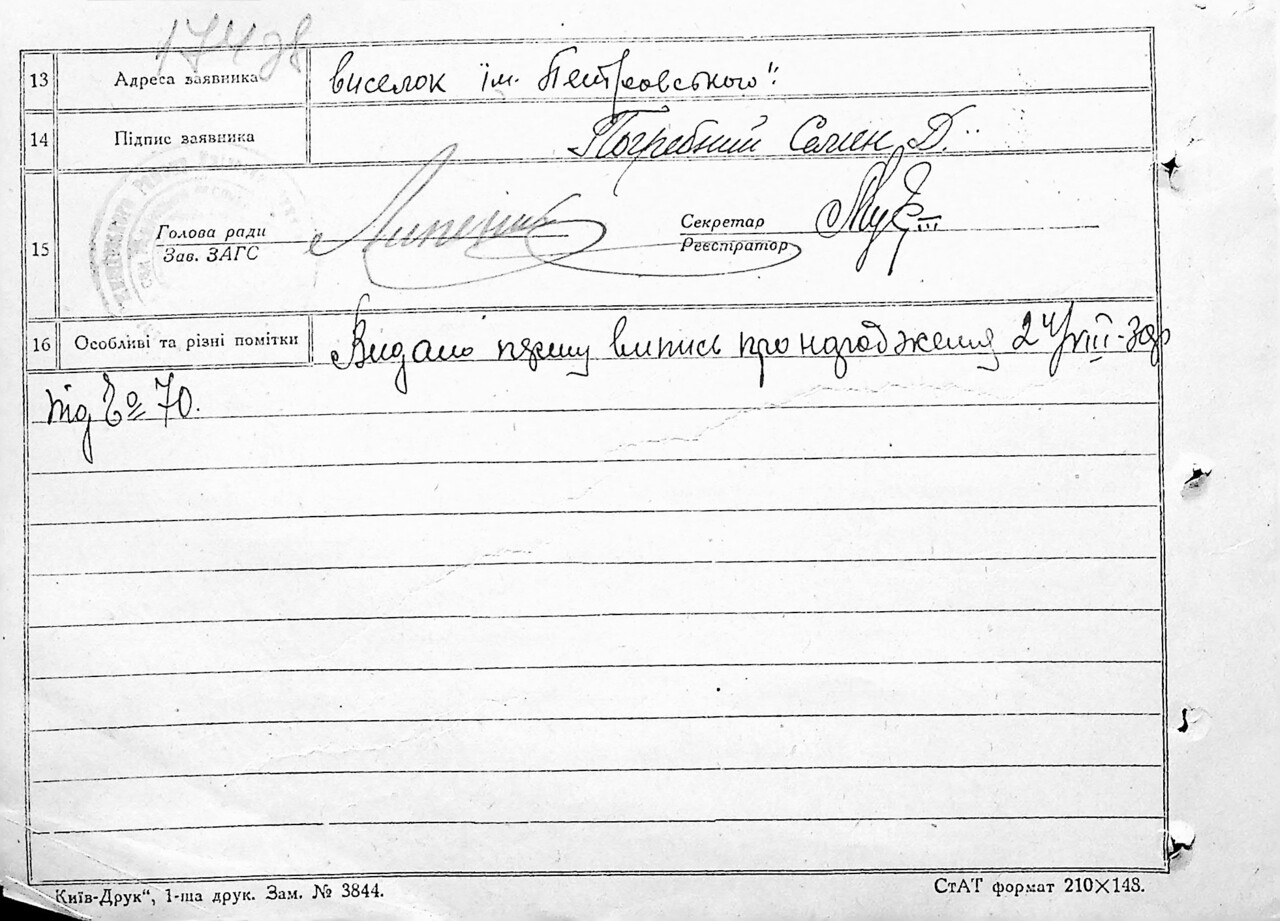 174 зв
13 Адреса заявника виселок їм. Петровського"
14 Підпис заявника Погребний Семен Д.
15 Голова ради Секретар
Зав. ЗАГС Реєстратор
16 Особливі та різні помітки Видано першу випись про народження 24/VIII-30р
під № 70.
Київ-Друк“, 1-ша друк. Зам. № 3844. СтАТ формат 210×148.